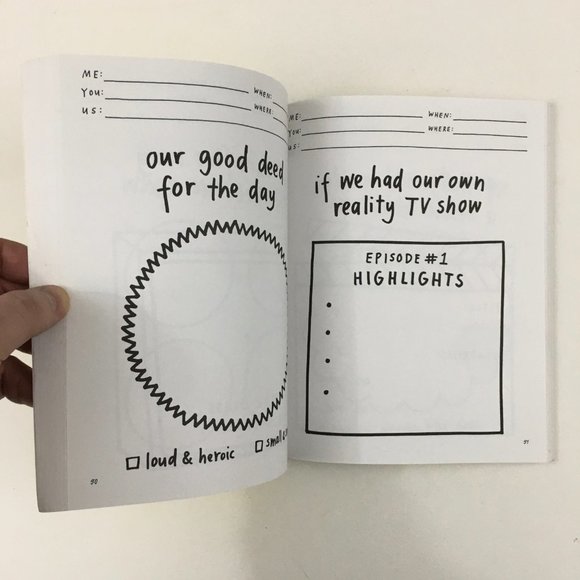 ME:
YOU:
US:
WHEN:
WHERE:
our good deed
for the day
loud & heroic
90
ME:
YOU:
US:
WHEN:
WHERE:
if we had our own
reality TV show
EPISODE #1
HIGHLIGHTS
91